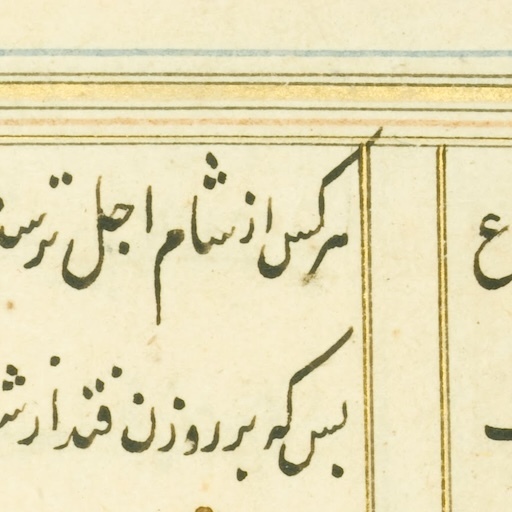 هر کس از شام اجل ترسد
بس که بر روزن فتد از